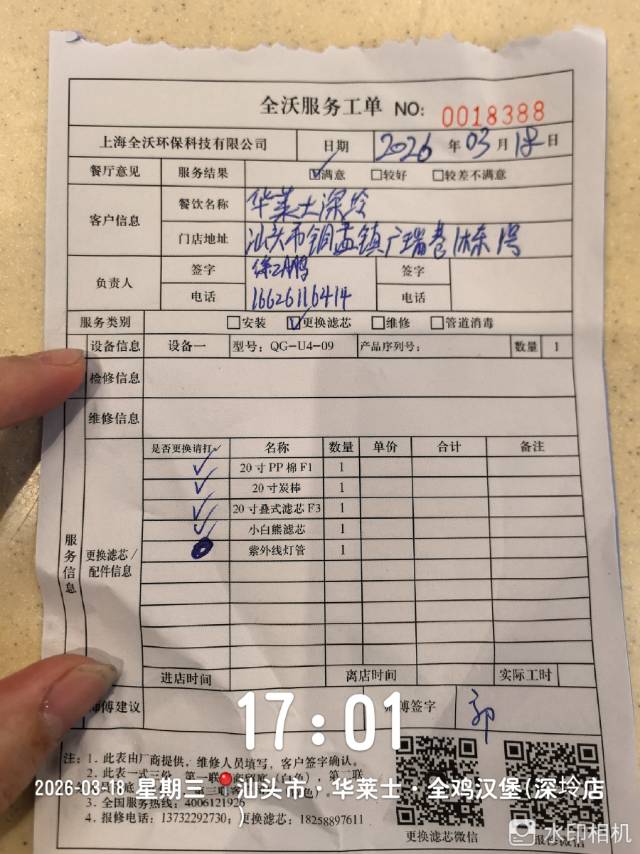 全沃服务工单 NO: 0018388
上海全沃环保科技有限公司 日期 2026 年 03 月 18 日
餐厅意见 服务结果 ☑满意 □较好 □较差不满意
客户信息 餐饮名称 华莱士深坽
门店地址 汕头市铜盂镇广瑞巷 1号
负责人 签字 签字
电话 16626116414 电话
服务类别 □安装 ☑更换滤芯 □维修 □管道消毒
设备信息 设备一 型号: QG-U4-09 产品序列号: 数量 1
检修信息
维修信息
服务信息
更换滤芯/配件信息
是否更换请打✓ 名称 数量 单价 合计 备注
✓ 20寸PP棉F1 1
✓ 20寸炭棒 1
✓ 20寸叠式滤芯F3 1
✓ 小白熊滤芯 1
紫外线灯管 1
进店时间 离店时间 实际工时
师傅建议 师傅签字 郭
17:01
注: 1. 此表由厂商提供、维修人员填写,客户签字确认。
2. 此表一式三份 第一联
2026-03-18 星期三 汕头市·华莱士·全鸡汉堡(深坽店)
3. 全国服务热线: 4006121926
4. 报修电话: 13732292730; 18258897611
更换滤芯微信 报修微信
水印相机